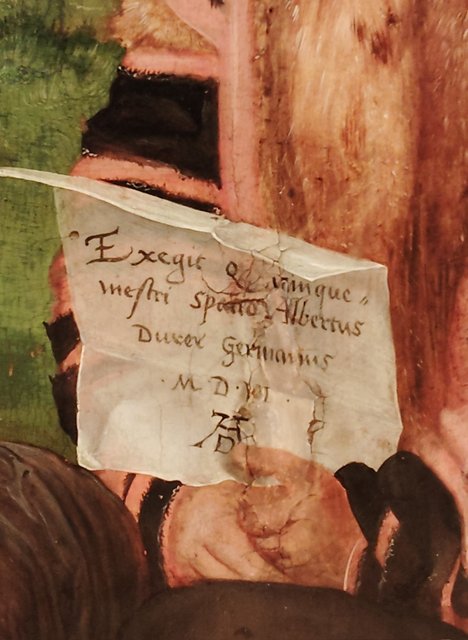 Exegit quinque=
mestri spatio Albertus
Durer Germanus
·M·D·VI·
AD